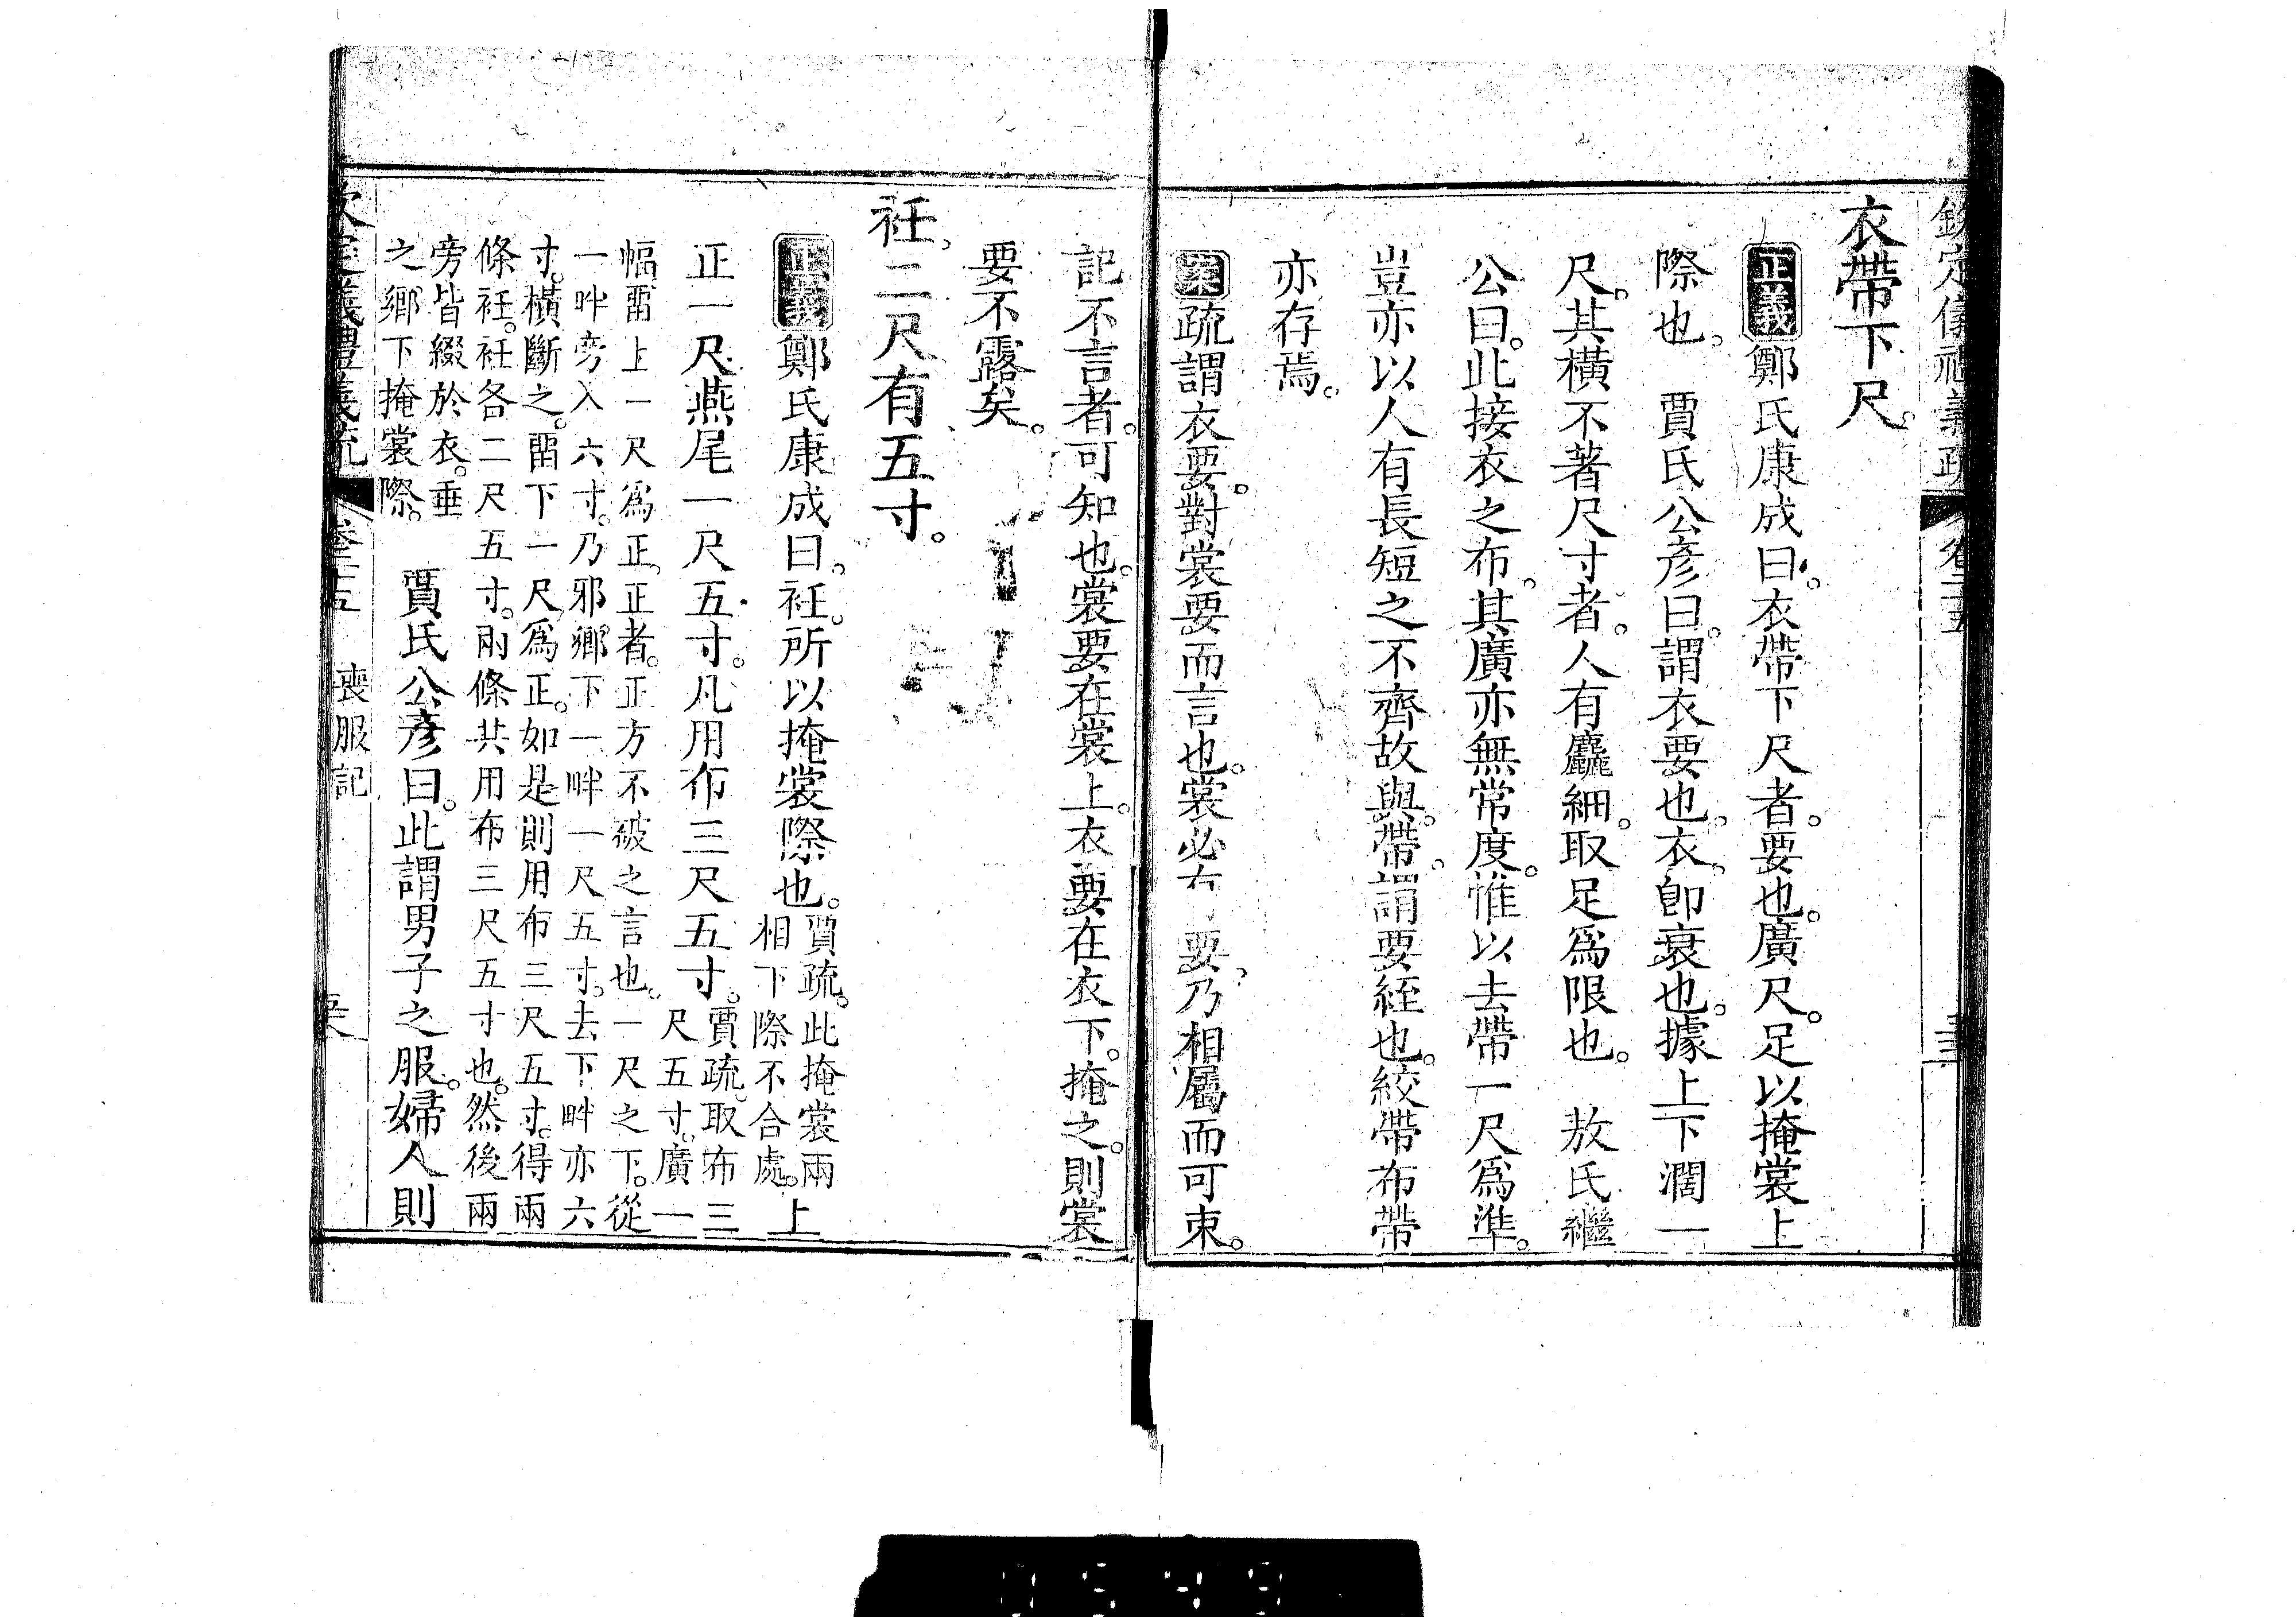 欽定儀禮義疏 卷二十五
衣帶下尺。
正義鄭氏康成曰。衣帶下尺者。要也。廣尺。足以掩裳上
際也。 賈氏公彥曰。謂衣要也。衣。卽衰也。據上下濶一
尺。其橫不著尺寸者。人有麤細。取足爲限也。 敖氏繼
公曰。此接衣之布。其廣亦無常度。惟以去帶一尺爲準。
豈亦以人有長短之不齊故與。帶。謂要絰也。絞帶布帶
亦存焉。
案疏謂衣要。對裳要而言也。裳必 要。乃相屬而可束。
記不言者。可知也。裳要在裳上。衣要在衣下。掩之。則裳
要不露矣。
衽。二尺有五寸。
正義鄭氏康成曰。衽。所以掩裳際也。賈疏。此掩裳兩
相下際不合處。上
正一尺。燕尾一尺五寸。凡用布三尺五寸。賈疏。取布三
尺五寸。廣一
幅。畱上一尺爲正。正者。正方不破之言也。一尺之下。從
一畔旁入六寸。乃邪鄉下一畔一尺五寸。去下畔亦六
寸。橫斷之。畱下一尺爲正。如是則用布三尺五寸。得兩
條衽。衽各二尺五寸。兩條共用布三尺五寸也。然後兩
旁皆綴於衣。垂
之鄉下掩裳際。 賈氏公彥曰。此謂男子之服。婦人則
喪服記